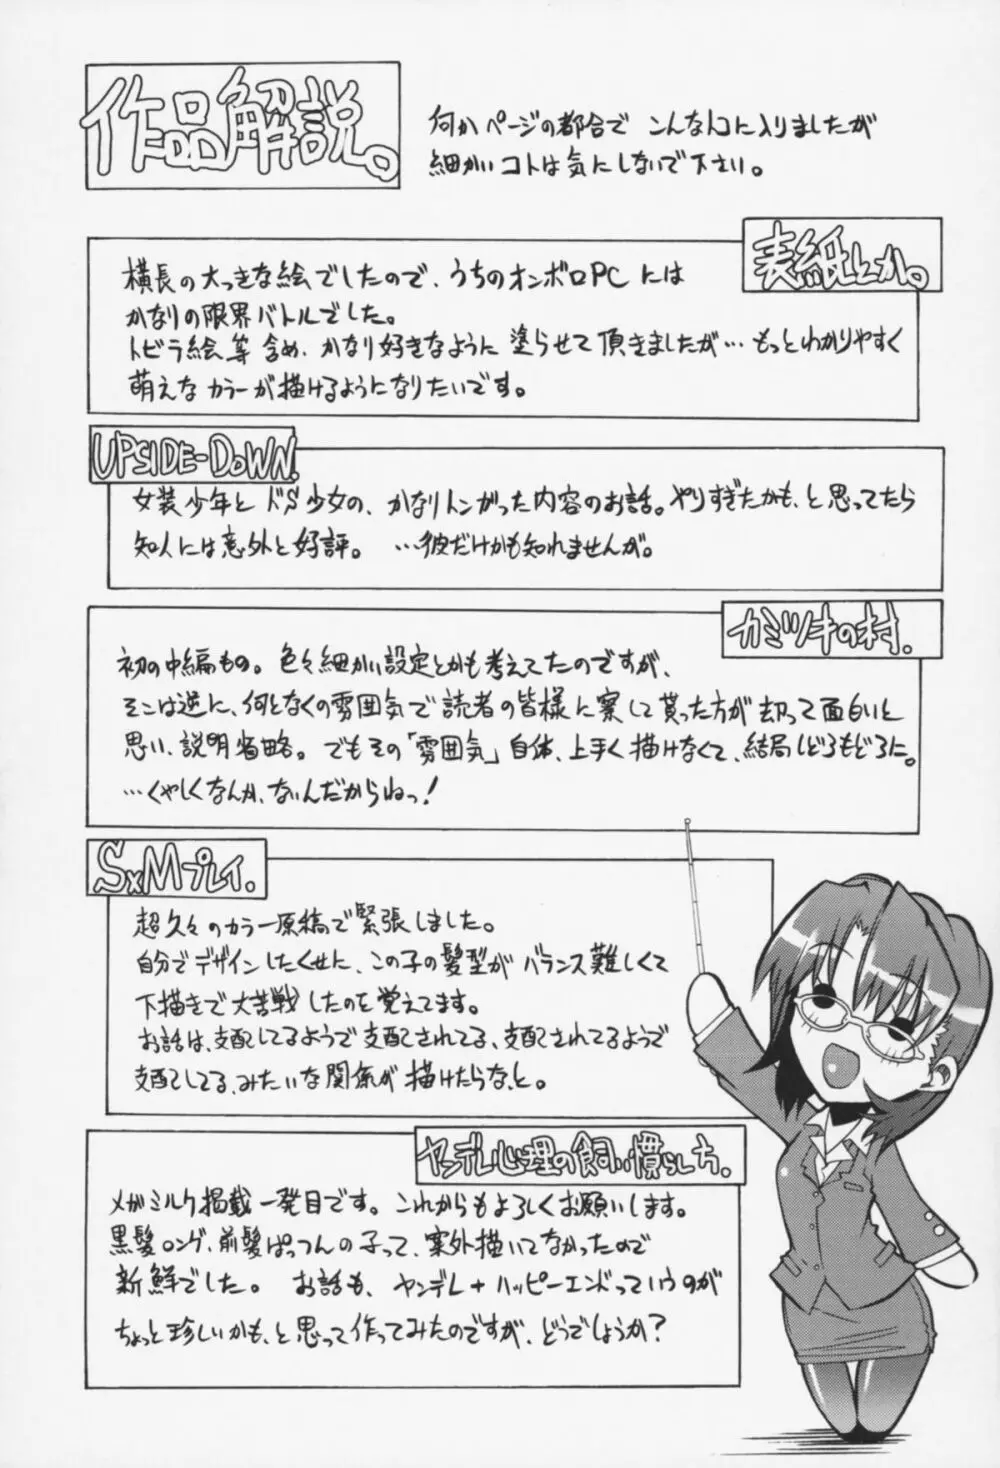 作品解説。
何かページの都合で こんなトコに入りましたが
細かいコトは気にしないで下さい。
表紙とか。
横長の大っきな絵でしたので、うちのオンボロPCには
かなりの限界バトルでした。
トビラ絵等含め、かなり好きなように塗らせて頂きましたが…もっとわかりやすく
萌えなカラーが描けるようになりたいです。
UPSIDE-DOWN.
女装少年とドS少女の、かなりトンがった内容のお話。やりすぎたかも、と思ってたら
知人には意外と好評。 …彼だけかも知れませんが。
カミツキの村.
初の中編もの。色々細かい設定とかも考えてたのですが、
そこは逆に、何となくの雰囲気で読者の皆様に察して貰った方が却って面白いと
思い、説明省略。でもその「雰囲気」自体、上手く描けなくて、結局しどろもどろに。
…くやしくなんか、ないんだからねっ!
S×Mプレイ.
超久々のカラー原稿で緊張しました。
自分でデザインしたくせに、この子の髪型がバランス難しくて
下描きで大苦戦したのを覚えてます。
お話は、支配してるようで支配されてる、支配されてるようで
支配してる、みたいな関係が描けたらな、と。
ヤンデレ心理の飼い慣らし方.
メガミルク掲載一発目です。これからもよろしくお願いします。
黒髪ロング、前髪ぱっつんの子って、案外描いてなかったので
新鮮でした。 お話も、ヤンデレ+ハッピーエンドっていうのが
ちょっと珍しいかも、と思って作ってみたのですが、どうでしょうか?